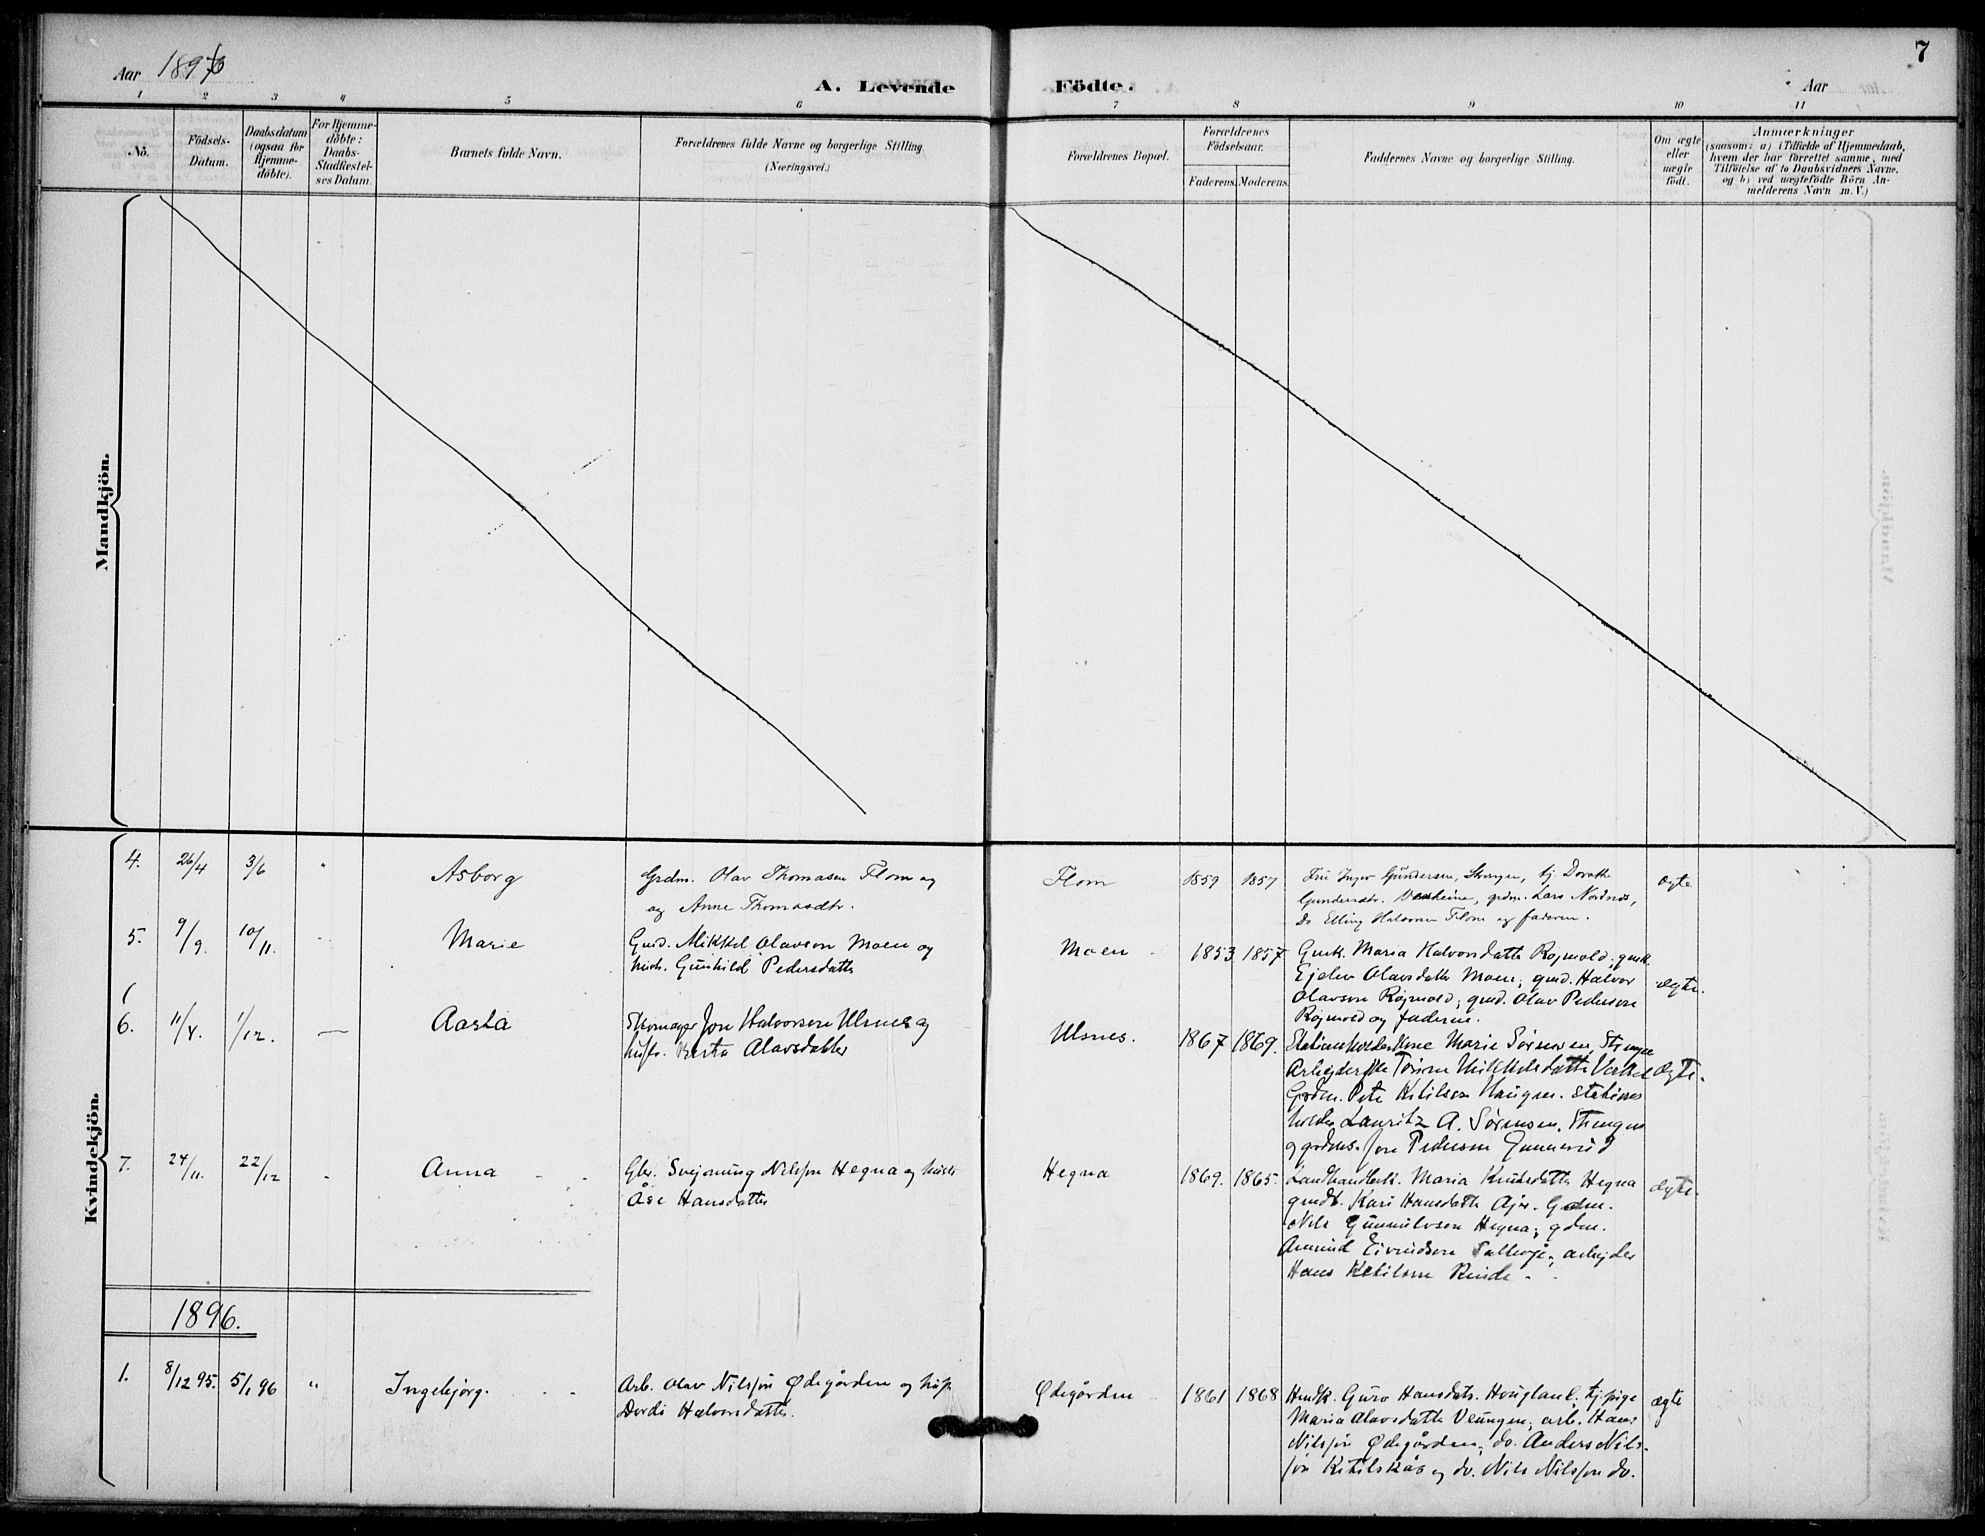 7
Aar 1896
A. Levende Födte.
Aar
1 2 3 4 5 6 7 8 9 10 11
No.
Födsels-Datum.
Daabsdatum (ogsaa for Hjemme-döbte).
For Hjemme-döbte: Daabs-Stadfæstel-ses Datum.
Barnets fulde Navn.
Forældrenes fulde Navne og borgerlige Stilling
(Næringsvei.)
Forældrenes Bopæl.
Forældrenes Födselsaar.
Faderens. Moderens.
Faddernes Navne og borgerlige Stilling.
Om ægte eller uægte födt.
Anmærkninger
(saasom: a) i Tilfælde af Hjemmedaab,
hvem der har forrettet samme, med
Tilföielse af to Daabsvidners Navne.
og b) ved uægtefödte Börn An-
melderens Navn m. V.)
Mandkjön.
Kvindekjön.
4. 26/4 3/6 " Asborg
Grdm. Olav Thomasen Flom og
og Anne Thomasdtr.
Flom 1859 1857
Fru Inger Gundersen, Strengen, tj. Dorothe
Gundersdtr. grdm. Lars Nordnes,
Do Elling Halvorsen Flom og faderen.
ægte
5. 9/9. 10/11. Marie
Gmd. Mikkel Olavson Moen og
hust. Gunhild Pedersdatter
Moen 1853 1857
Gmk. Maria Halvorsdatter Rojmold; gmk.
Olavsdatter Moen; gmd. Halvor
Olavson Rojmold; gmd. Olav Pederson
Rojmold og faderne.
ægte.
6. 11/4. 1/12. — Aasta
Skomager Jon Halvorsen Ulsnes og
hustr. Berta Olavsdatter
Ulsnes. 1867 1869.
Stationsholderkone Marie Sörensen, Strengen
Arbejderske Mikkelsdatter
Grdm. Ketilsen Haugen. Stations
holder Lauritz A. Sörensen, Strengen
og grdms. Jon Pedersen Gunnerud
Ægte.
7. 24/11. 22/12 Anna
Gbr. Svejnung Nilsson Hegna og hustr
Åse Hansdatter
Hegna 1869. 1865.
Landhandlerk. Maria Knutsdatter Hegna
gmdt. Kari Hansdatter Gdm.
Nils Gunnulvsen Hegna; gdm.
Amund Eivindsen arbejder
Hans Ketilsen Rinde.
ægte.
1896.
1. 8/12 95. 5/1 96 " Ingebjorg.
Arb. Olav Nilsson Ødegården og hust.
Dordi Halvorsdatter.
Ødegården 1861 1868
Hmdk. Guro Hansdatr. Hougland; tj.pige
Maria Olavsdatter Veungen; arb. Hans
Nilsson Ødegården; do. Anders Nils-
son Ketilskås og do. Nils Nilsson do.
ægte